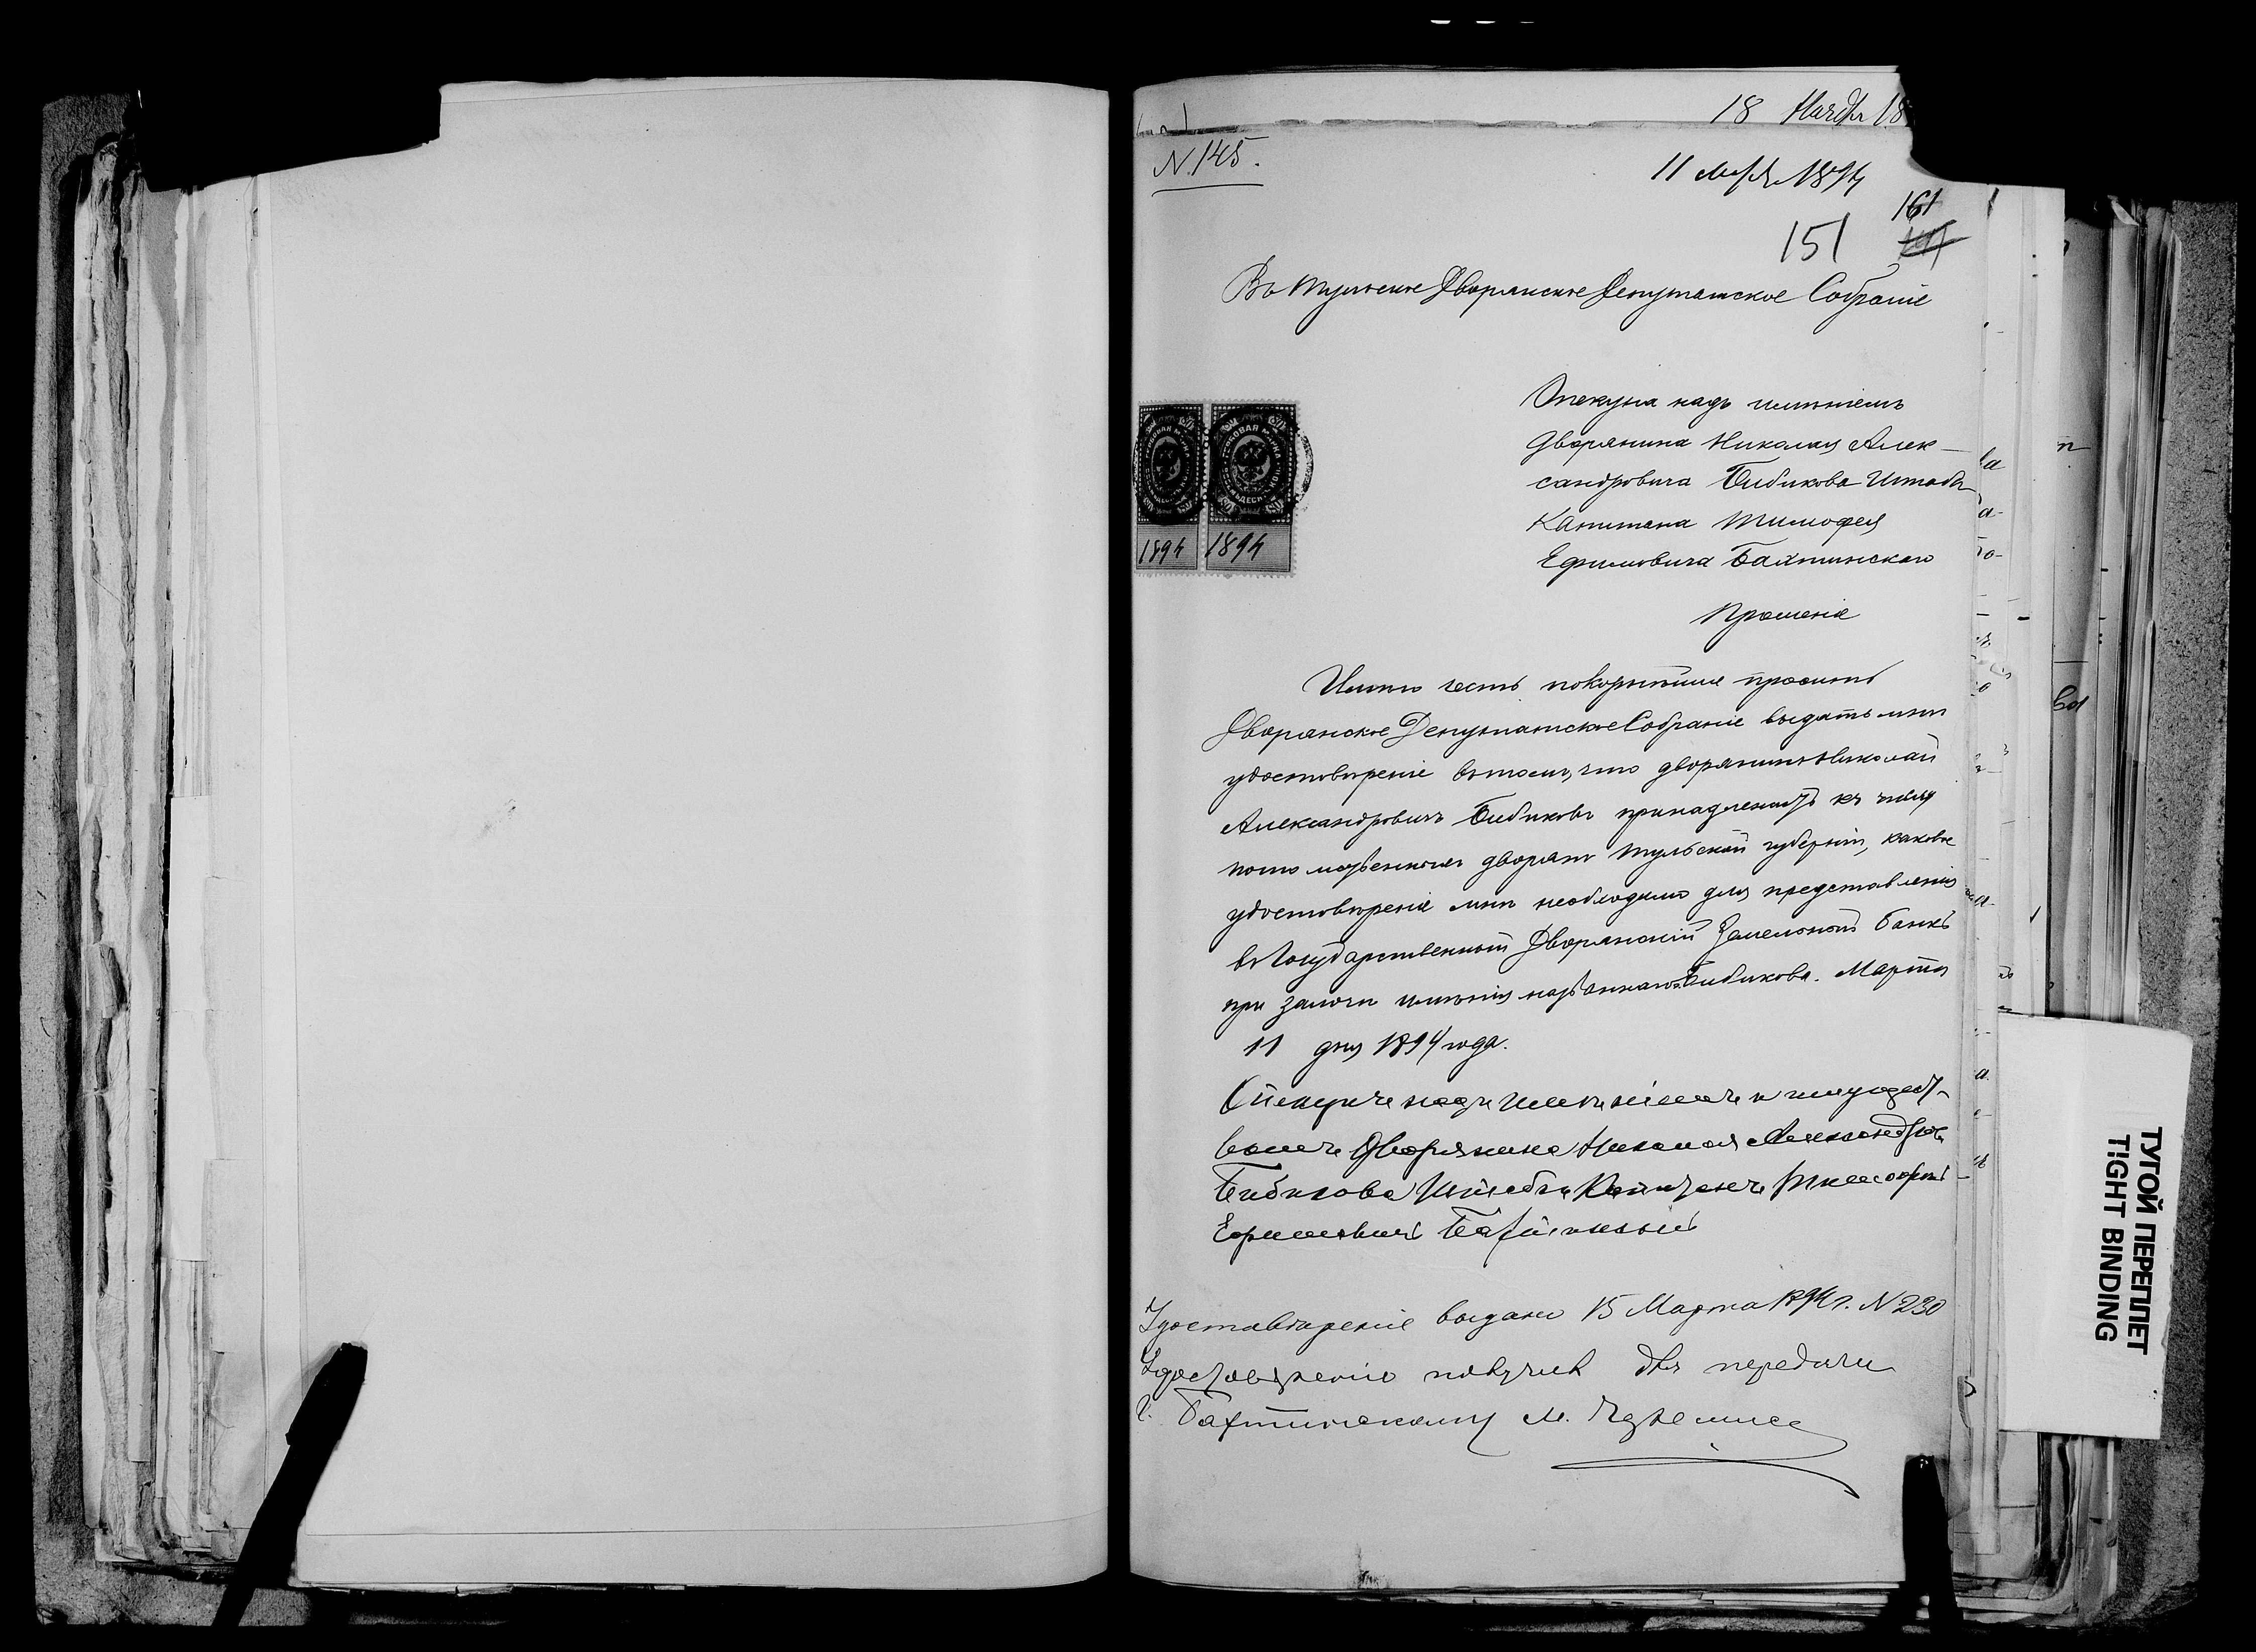 18 Ноября 18
N. 145.
11 Марта 1894
161
151
Въ Тульское Дворянское Депутатское Собраніе
Опекуна надъ имѣніемъ
дворянина Николая Алек-
сандровича Бибикова Штабсъ
Капитана Тимофея
Ефимовича Бахтинскаго
Прошеніе
Имѣю честь покорнѣйше просить
Дворянское Депутатское Собраніе выдать мнѣ
удостовѣреніе въ томъ, что дворянинъ Николай
Александровичъ Бибиковъ принадлежитъ къ числу
потомственныхъ дворянъ Тульской губерніи, каковое
удостовѣреніе мнѣ необходимо для представленія
въ Государственный Дворянскій Земельный банкъ
при залогѣ имѣнія названнаго Бибикова. Марта
11 дня 1894 года.
Опекунъ надъ имѣніемъ и имущест-
вомъ Дворянина Николая Александров.
Бибикова Штабсъ Капитанъ Тимофей
Ефимовичъ Бахтинскій
1894 1894
Удостовѣреніе выдано 15 Марта 1894 г. N 230
Удостовѣреніе получилъ для передачи
г. Бахтинскому М.
ТУГОЙ ПЕРЕПЛЕТ
TIGHT BINDING